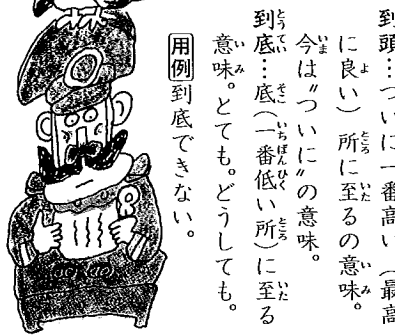 到頭…ついに一番高い（最高
に良い）所に至るの意味。
今は〝ついに〟の意味。
到底…底（一番低い所）に至る
意味。とても。どうしても。
用例 到底できない。